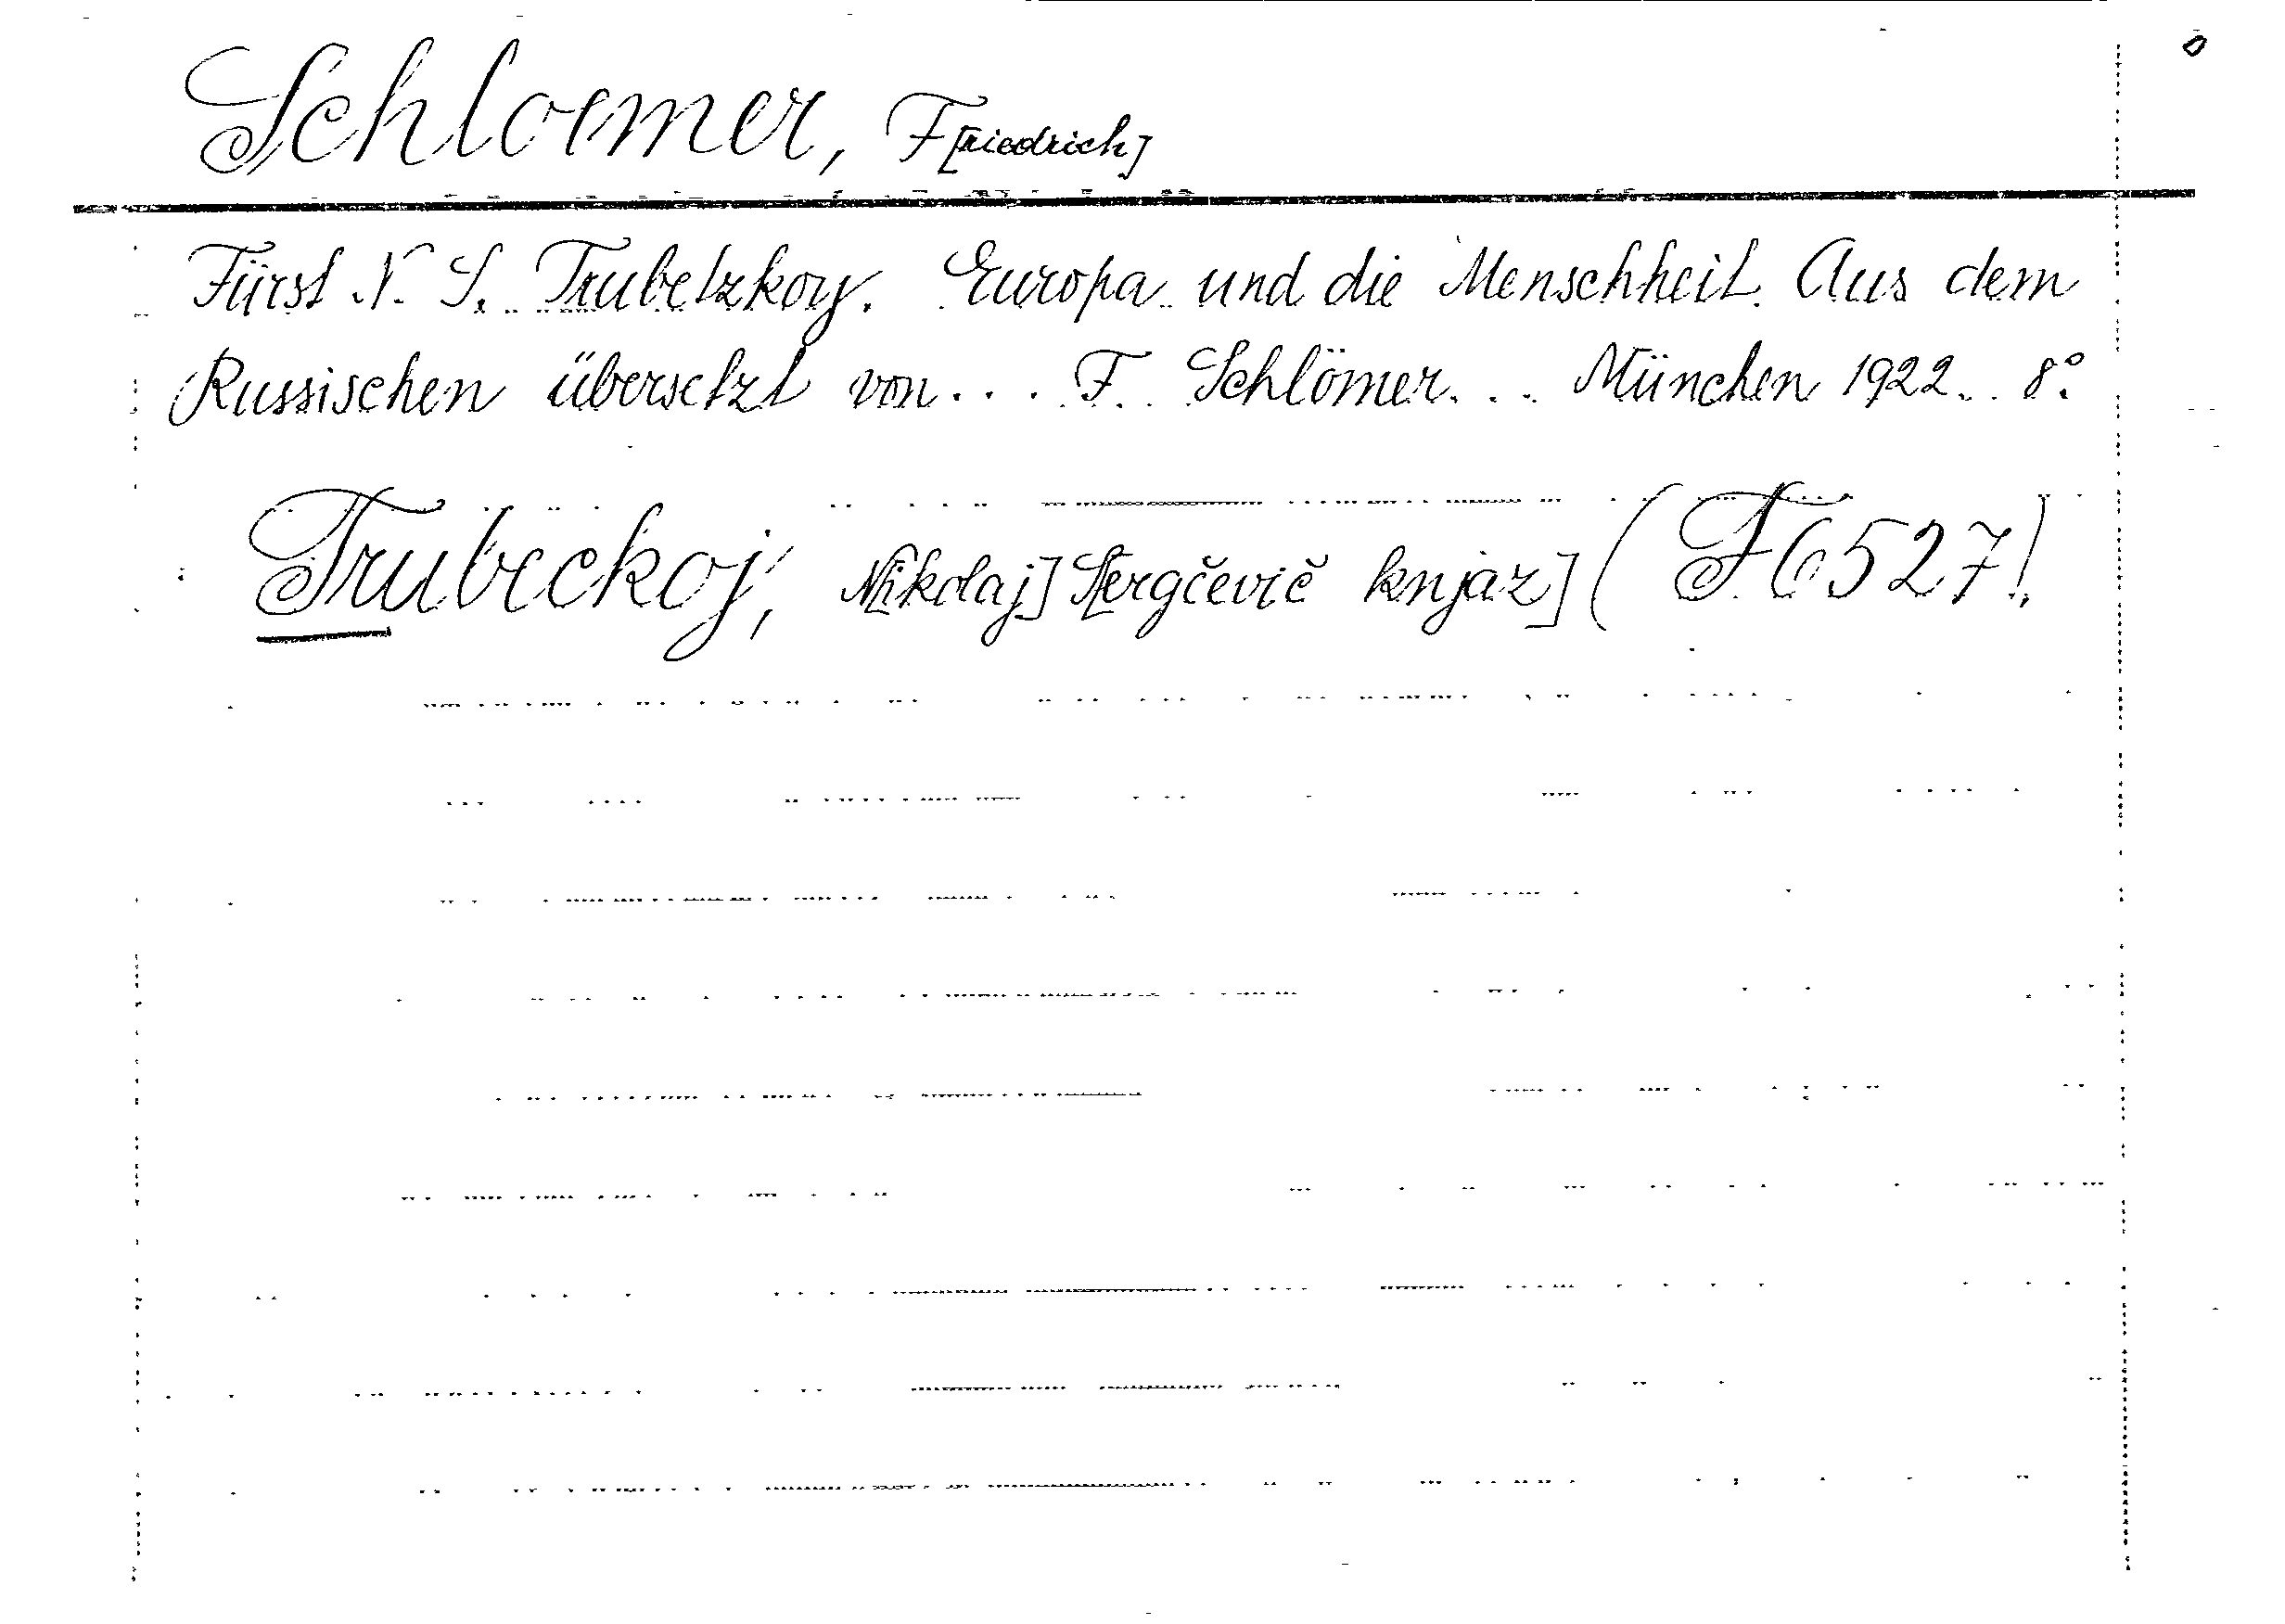 Schloemer, F[riedrich]
Fürst N. S. Trubetzkoy. Europa und die Menschheit. Aus dem
Russischen übersetzt von... F. Schlömer... München 1922. 8°.
Trubeckoj, N[ikolaj] S[ergěevič knjaz] (F6527).